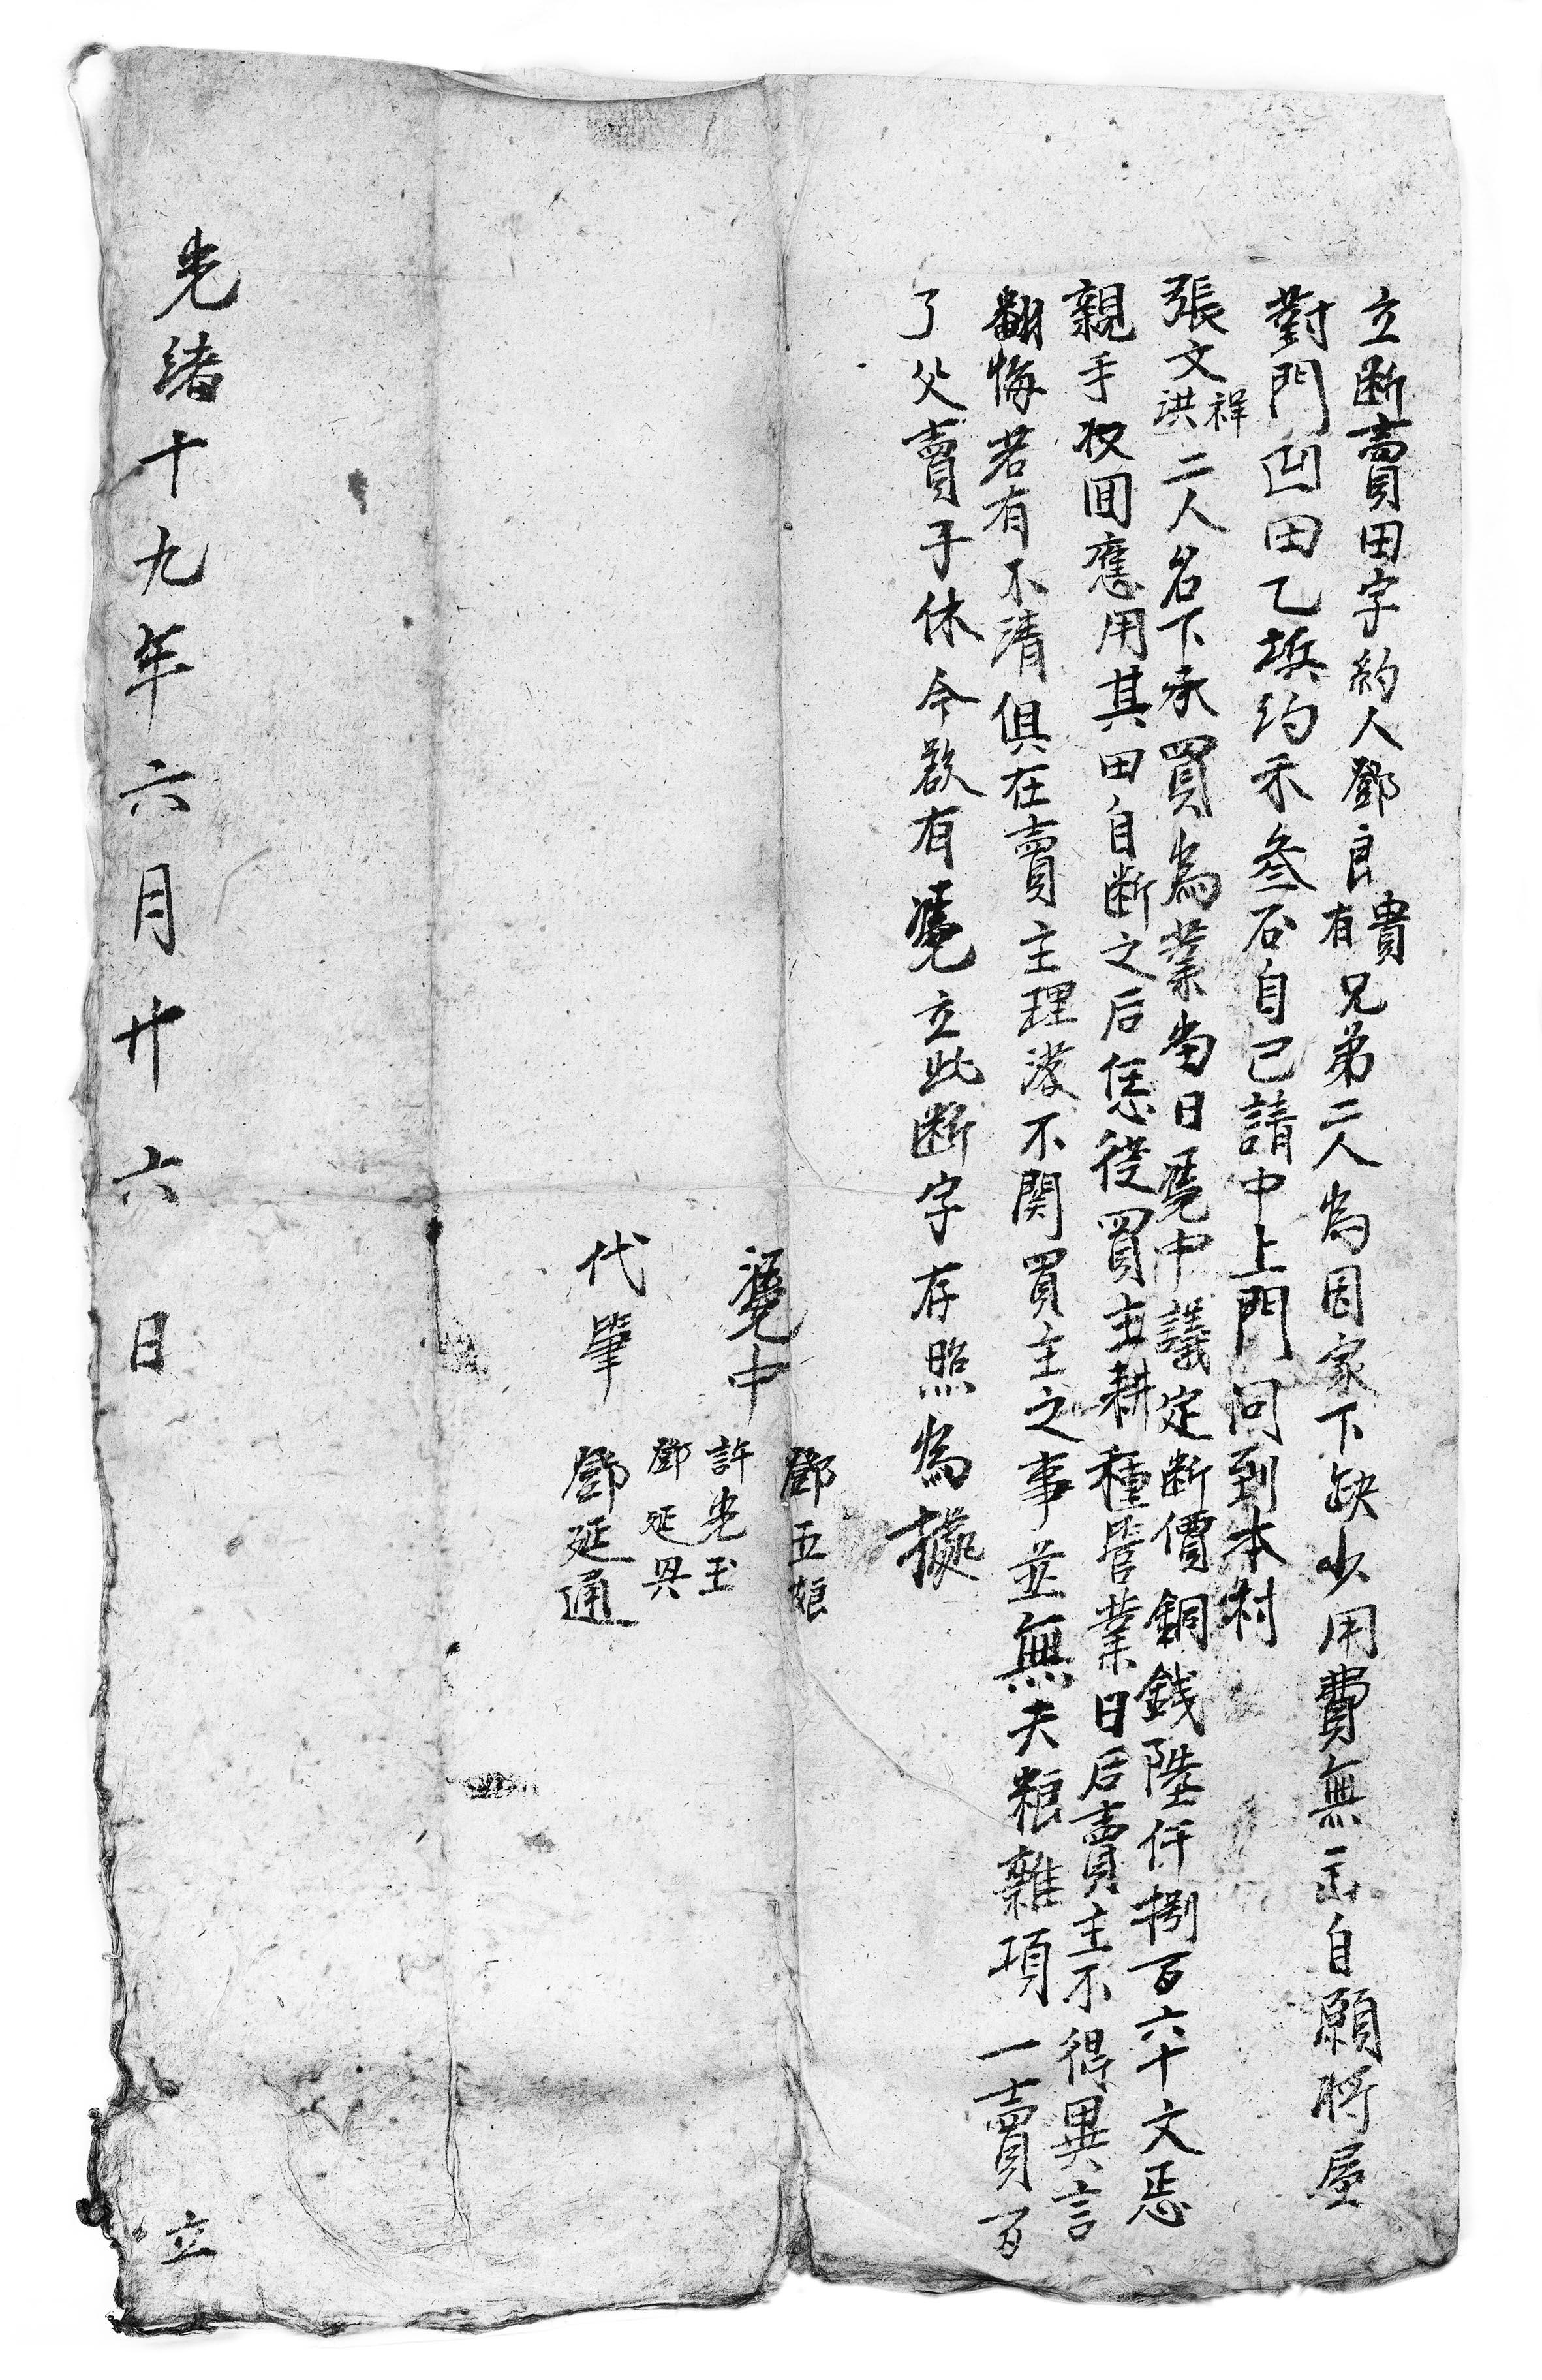 立断賣田字約人鄧良貴有兄弟二人為因家下缺少用費無出自願將屋
對門凹田乙坵約禾叁石自己請中上門问到本村
張文祥洪二人名下承買為業当日凴中議定断價銅銭陸仟捌百六十文恁
親手收囬應用其田自断之后恁從買主耕種管業日后賣主不得異言
翻悔若有不清俱在賣主理落不関買主之事並無夫粮雜項一賣百
了父賣子休今欲有凴立此断字存照為據
鄧五娘
凴中 許光玉
鄧延興
代筆 鄧延通
光緒十九年六月廿六日 立